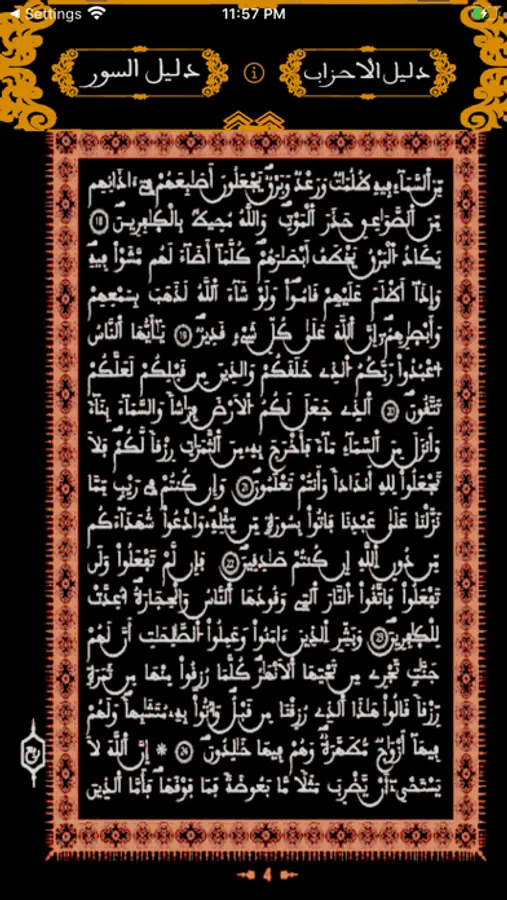 ◀ Settings 11:57 PM
دليل الاحزاب
i
دليل السور
مِّنَ اَ۬لسَّمَآءِ فِيهِ ظُلُمَٰتٞ وَرَعْدٞ وَبَرْقٞ يَجْعَلُونَ أَصَٰبِعَهُمْ فِےٓ ءَاذَانِهِم
مِّنَ اَ۬لصَّوَٰعِقِ حَذَرَ اَ۬لْمَوْتِۖ وَاللَّهُ مُحِيطُۢ بِالْكٰ۪فِرِينَۖ 18
يَكَادُ اُ۬لْبَرْقُ يَخْطَفُ أَبْصَٰرَهُمْ كُلَّمَآ أَضَآءَ لَهُم مَّشَوْاْ فِيهِ
وَإِذَآ أَظْلَمَ عَلَيْهِمْ قَامُواْۖ وَلَوْ شَآءَ اَ۬للَّهُ لَذَهَبَ بِسَمْعِهِمْ
وَأَبْصٰ۪رِهِمُۥٓۖ إِنَّ اَ۬للَّهَ عَلَىٰ كُلِّ شَےْءٖ قَدِيرٞۖ 19 يَٰٓأَيُّهَا اَ۬لنَّاسُ
اُ۟عْبُدُواْ رَبَّكُمُ اُ۬لذِے خَلَقَكُمْ وَالذِينَ مِن قَبْلِكُمْ لَعَلَّكُمْ
تَتَّقُونَۖ 20 اَ۬لذِے جَعَلَ لَكُمُ اُ۬لَارْضَ فِرَٰشاٗ وَالسَّمَآءَ بِنَآءٗ
وَأَنزَلَ مِنَ اَ۬لسَّمَآءِ مَآءٗ فَأَخْرَجَ بِهِۦ مِنَ اَ۬لثَّمَرَٰتِ رِزْقاٗ لَّكُمْۖ فَلَا
تَجْعَلُواْ لِلهِ أَندَاداٗ وَأَنتُمْ تَعْلَمُونَۖ 21 وَإِن كُنتُمْ فِے رَيْبٖ مِّمَّا
نَزَّلْنَا عَلَىٰ عَبْدِنَا فَاتُواْ بِسُورَةٖ مِّن مِّثْلِهِۦ وَادْعُواْ شُهَدَآءَكُم
مِّن دُونِ اِ۬للَّهِ إِن كُنتُمْ صَٰدِقِينَۖ 22 فَإِن لَّمْ تَفْعَلُواْ وَلَن
تَفْعَلُواْ فَاتَّقُواْ اُ۬لنَّارَ اَ۬لتِے وَقُودُهَا اَ۬لنَّاسُ وَالْحِجَارَةُۖ أُعِدَّتْ
لِلْكٰ۪فِرِينَۖ 23 وَبَشِّرِ اِ۬لذِينَ ءَامَنُواْ وَعَمِلُواْ اُ۬لصَّٰلِحَٰتِ أَنَّ لَهُمْ
جَنَّٰتٖ تَجْرِے مِن تَحْتِهَا اَ۬لَانْهَٰرُ كُلَّمَا رُزِقُواْ مِنْهَا مِن ثَمَرَةٖ
رِّزْقاٗ قَالُواْ هَٰذَا اَ۬لذِے رُزِقْنَا مِن قَبْلُ وَأُتُواْ بِهِۦ مُتَشَٰبِهاٗۖ وَلَهُمْ
فِيهَآ أَزْوَٰجٞ مُّطَهَّرَةٞۖ وَهُمْ فِيهَا خَٰلِدُونَۖ 24 * إِنَّ اَ۬للَّهَ لَا
يَسْتَحْيِۦٓ أَنْ يَّضْرِبَ مَثَلاٗ مَّا بَعُوضَةٗ فَمَا فَوْقَهَاۖ فَأَمَّا اَ۬لذِينَ
ربع
4